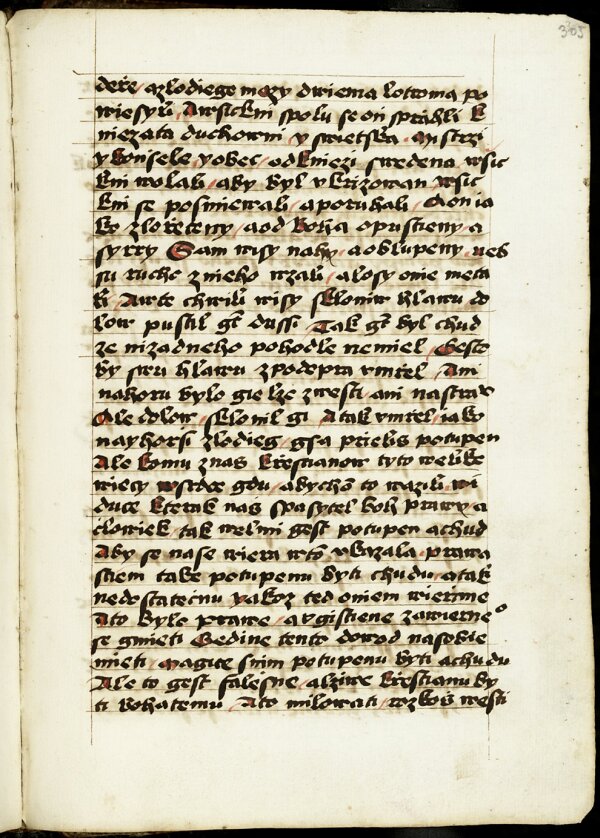 305
dere a zlodiege mezy dwiema lottoma po
wiesyli Awsickni spolu se on sprahli k
niezata duchowni y swietska
y konsele y obec od kniezi swedena wsic
kni wolali aby byl vkrizowan wsic
kni se posmiewali a poruhali A on ia
ko zlorzeceny a od boha opusstieny a
syry Sam wisy nahy a oblupeny neb
su rucho z nieho wzali a losy o nie meta
li A w te chwili wisy skloniw hlawu do
low pustil gt dussi Tak gt byl chud
ze nizadneho pohodle nemiel Gesto
by swu hlawu z podepra vmrel Ani
nahoru bylo gie lze zwesti ani na stranu
Ale dolow sklonil gi A tak vmrel iako
nayhorsi zlodieg gsa prielis potupen
Ale komu z nas krestianow tyto welike
wiecy w srdce gdu abychō to wazili wi
duce kterak nas spasytel boh prawy a
clowiek tak welmi gest potupen a chud
Aby se nase wiera w to vkazala prawa
sciem take potupenu byti chudu a tak
nedostatecnu yakoz ted o niem wierime
Ato bylo prawe a vgistiene zawierne
se gmieti Gedine tento dowod na sobie
mieti magice s nim potupenu byti a chudu
Ale to gest falesne a lziwe krestianu by
ti bohatemu A to milowati rozkos westi